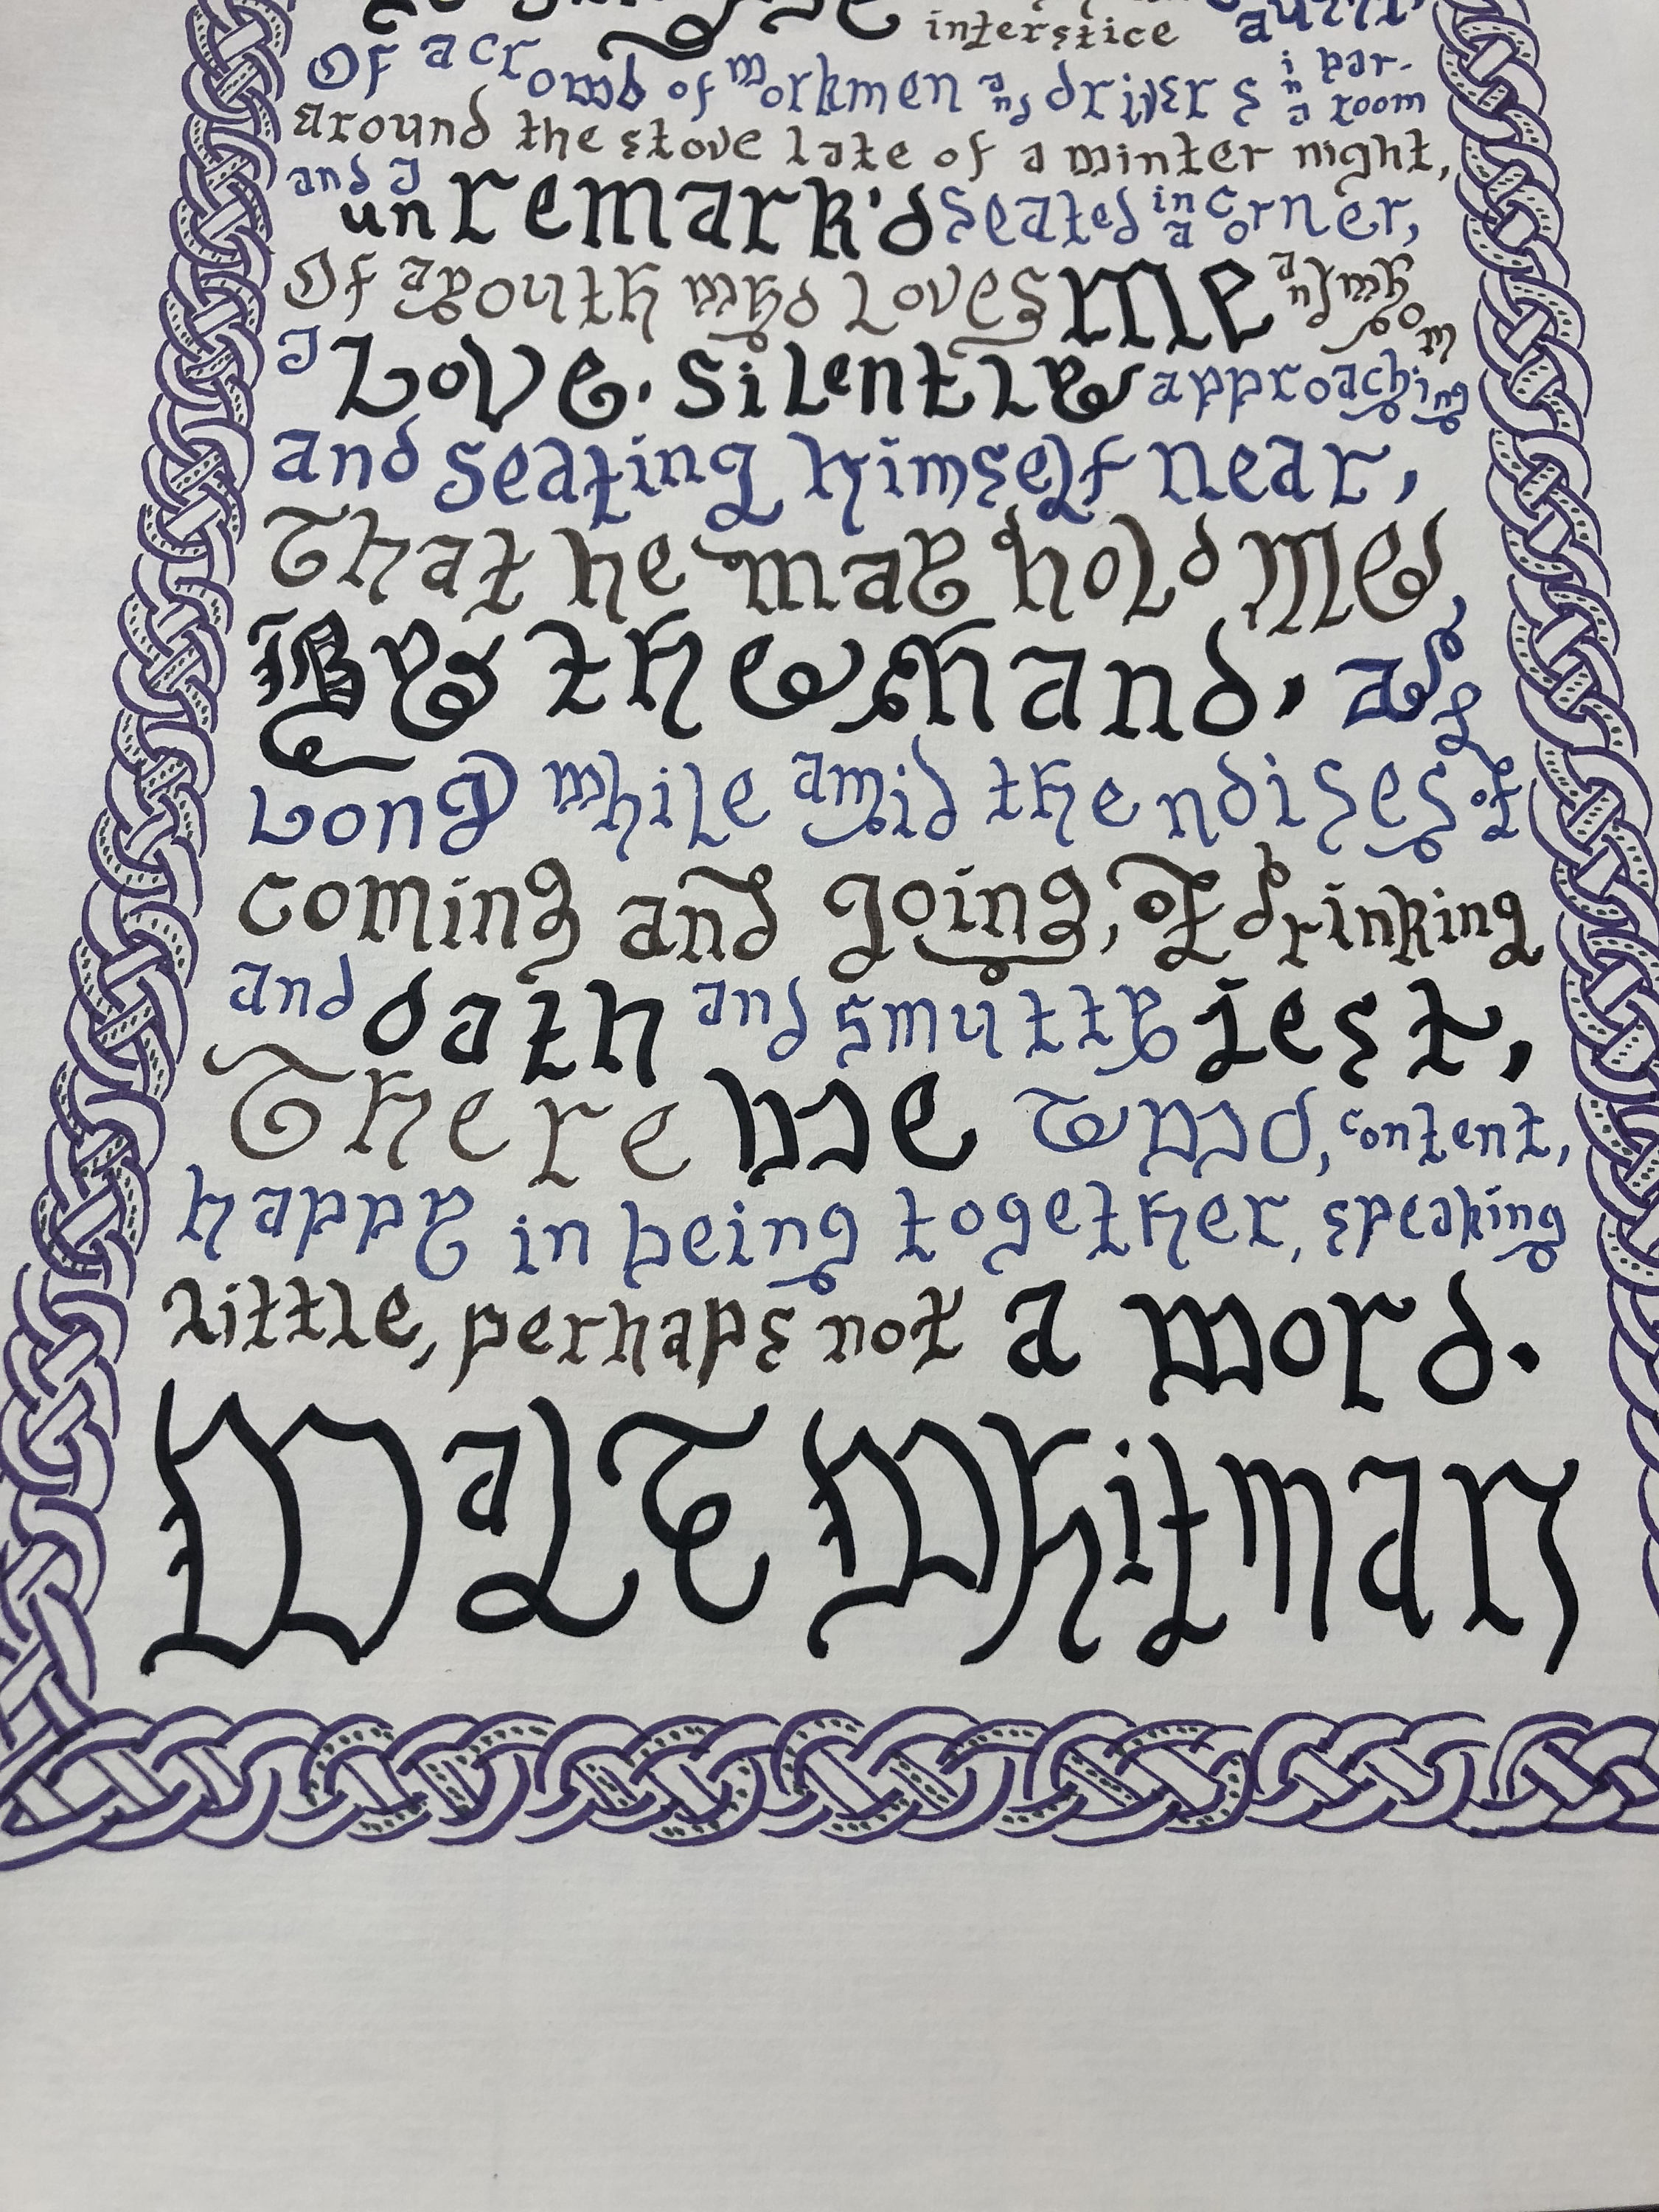 interstice
Of a crowd of workmen and drivers in a bar-room
around the stove late of a winter night,
and I unremark'd seated in a corner,
Of a youth who loves me and whom
I Love, silently approaching
and seating himself near,
That he may hold me
By the hand, a
Long while amid the noises of
coming and going, of drinking
and oath and smutty jest,
There we Two, content,
happy in being together, speaking
little, perhaps not a word.
Walt Whitman